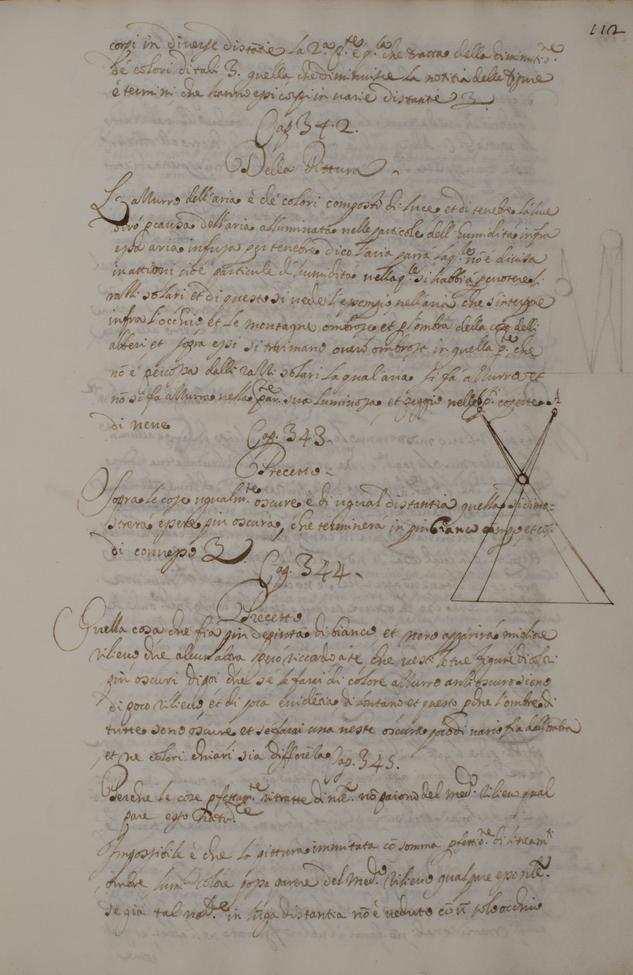 112
corpi in diverse distātie la 2.ª p.te è q.lla che tratta della diminuti.ne
de colori di tali 3. quella che diminuisce la notitia delle figure
e termini che hanno essi corpi in varie distantie
Cap. 342.
Della Pittura
L'azzurro dell'aria è de colori composto di luce et di tenebre la luce
dico p causa dell'aria alluminata nelle particole dell'humidita infra
essa aria infusa per tenebre dico l'aria pura la q.le nō è divisa
in attioni cioè particule d'humidita nella q.le si habbi à percotere li
razzi solari et di questo si vede l'esempio nell'aria che s'interpone
infra l'occhio et le montagne ombrose et p l'ombra della
alberi et sopra essi si trovano overo ombrose in quella p.te che
nō è percossa dalli razzi solari la qual'aria si fa azzurra et
nō si fa azzurra nella par.te sua luminosa et peggio nella p.te coperta A
di neve
Cap. 343.
Precetto
Sopra le cose ugualm.te oscure e di ugual distantia quella si dimo=
strerà essere piu oscura, che terminera in piu bianco campo et cosi
di converso
Cap. 344.
Precetto
Quella cosa che fia piu depinta di bianco et nero apparirà miglior
rilievo che alcun'altra però riccordate che vesti le tue figure di color
piu oscuri di poi che se le farai di colore azzurro anzi oscuro sieno
di poco rilievo et di poca evidētia di lontano et questo p che l'ombre di
tutte sono oscure et se farai una veste oscura poco di vario fia dall'ombra
et ne colori chiari sia differētia Cap. 345.
Perche le cose pfettam.te ritratte di nat.le nō paiono del med.o rilievo qual
pare esso nat.le
Impossibile è che la pittura immitata cō somma pfettio.ne di lineam.ti
ombre lumi colore possa parere del med.o rilievo qual pare esso nat.le
se già tal nat.le in lūga distantia nō è veduto cō ū solo occhio